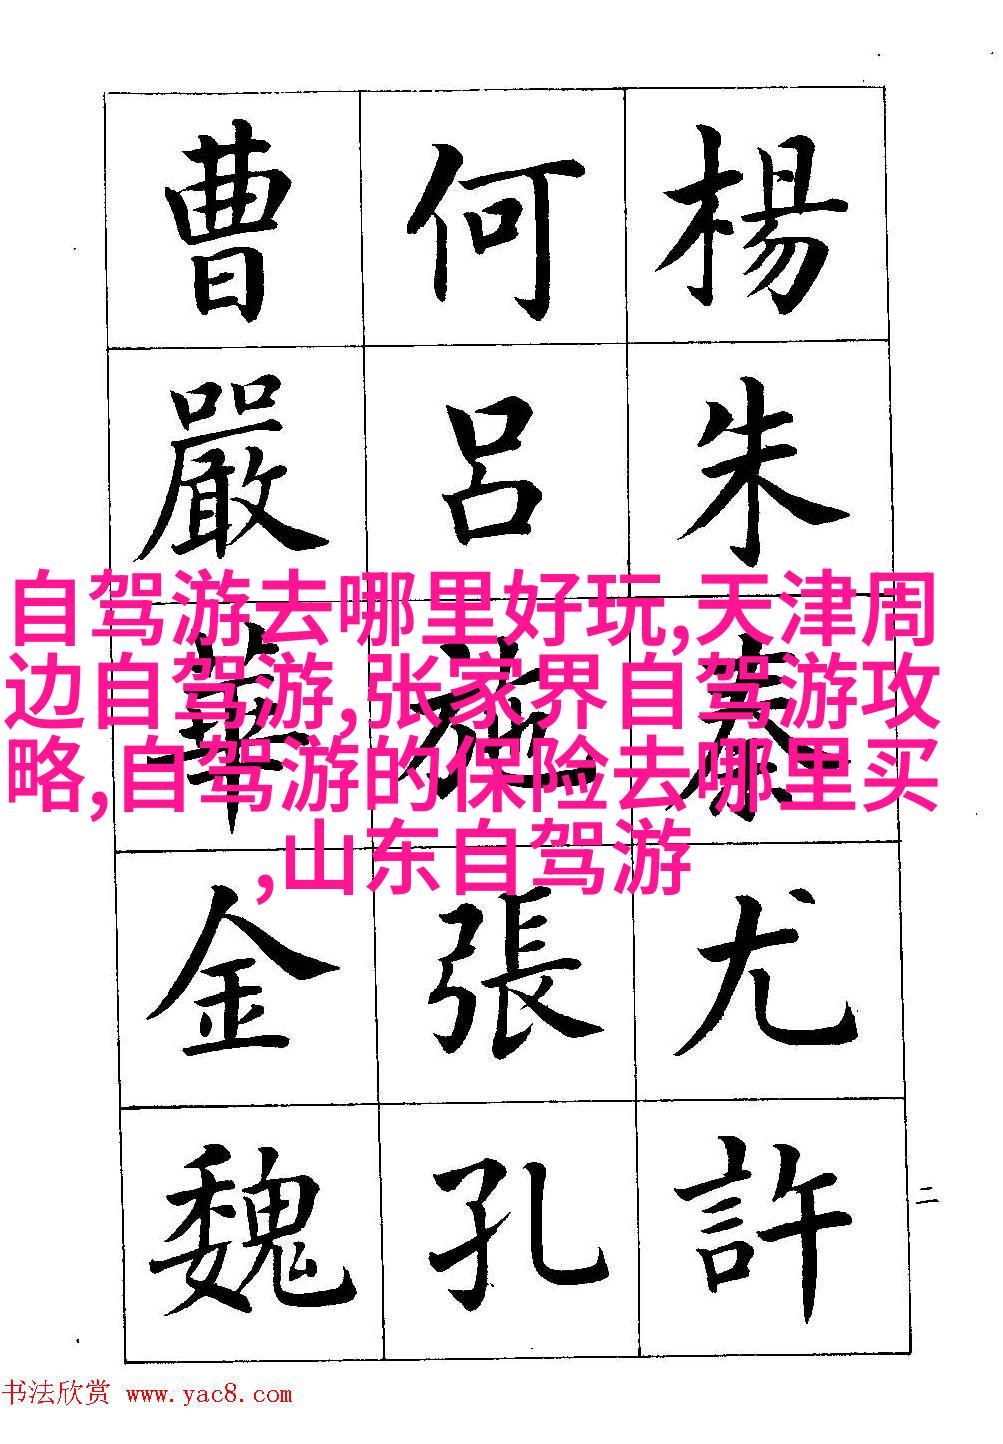 楊朱秦尤許
何吕施張孔
曹嚴華金魏
自驾游去哪里好玩,天津周
边自驾游,张家界自驾游攻
略,自驾游的保险去哪里买
,山东自驾游
二
书法欣赏 www.yac8.com